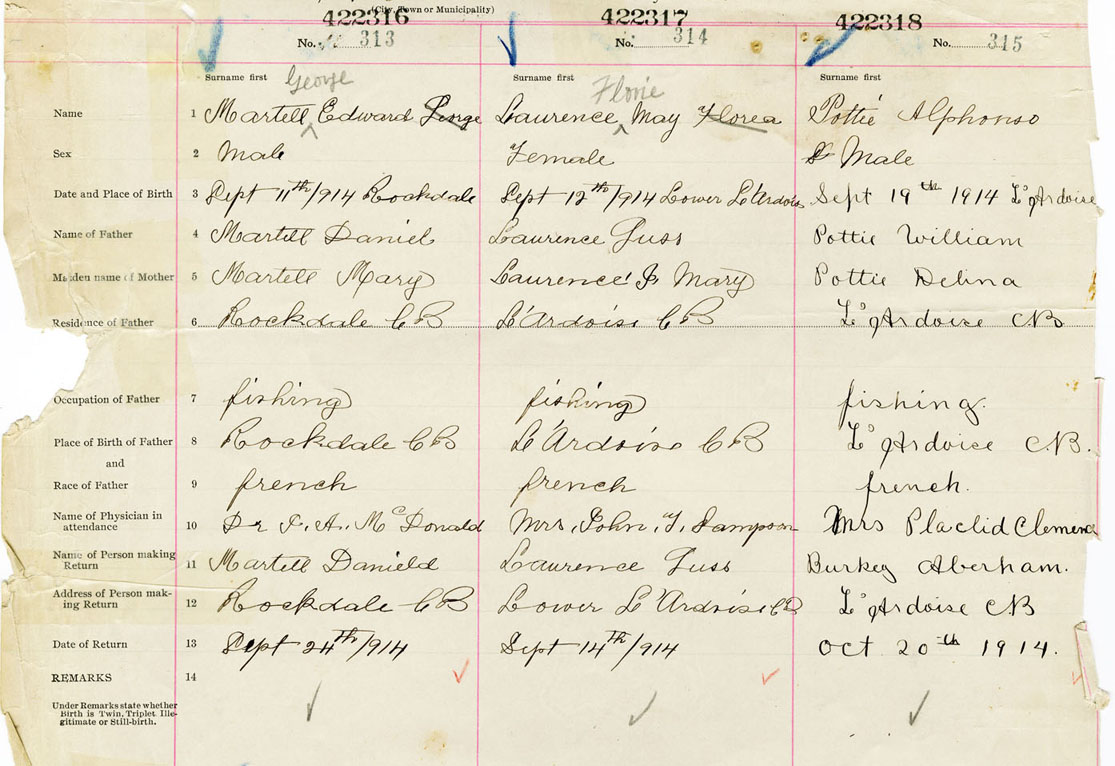 (City, Town or Municipality)
422316 422317 422318
No. 313 No. 314 No. 315
Surname first George Surname first Florie Surname first
Name 1 Martell Edward George Laurence May Florea Pottie Alphonso
Sex 2 Male Female Male
Date and Place of Birth 3 Sept 11th/914 Rockdale Sept 12th/914 Lower L'Ardois Sept 19th 1914 L'Ardoise
Name of Father 4 Martell Daniel Laurence Guss Pottie William
Maiden name of Mother 5 Martell Mary Laurence Mary Pottie Delina
Residence of Father 6 Rockdale CB L'Ardoise CB L'Ardoise CB
Occupation of Father 7 fishing fishing fishing.
Place of Birth of Father 8 Rockdale CB L'Ardoise CB L'Ardoise CB.
and
Race of Father 9 french french french.
Name of Physician in
attendance 10 Dr McDonald Mrs. John. Sampson Mrs Placlid Clemence
Name of Person making
Return 11 Martell Danield Laurence Guss Burkey Aberham.
Address of Person mak-
ing Return 12 Rockdale CB Lower L'Ardoise CB L'Ardoise CB
Date of Return 13 Sept 24th/914 Sept 14th/914 Oct 20th 1914.
REMARKS 14
Under Remarks state whether
Birth is Twin, Triplet Ille-
gitimate or Still-birth.